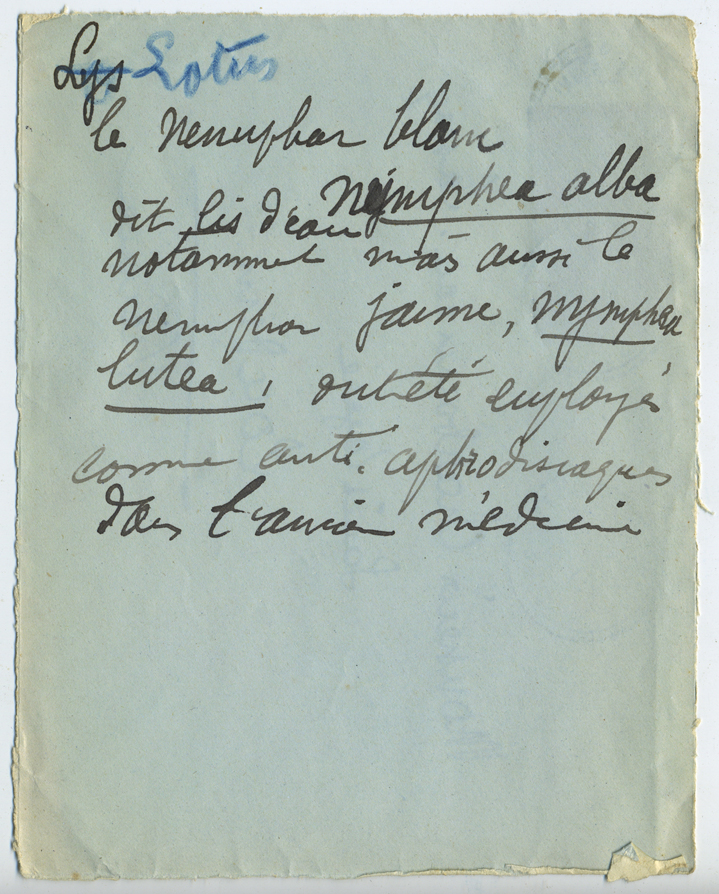 Lys
Lotus
le nenuphar blanc
dit lis d'eau nymphea alba
notamment mais aussi le
nenuphar jaune, nymphea
lutea, ont été employés
comme anti-aphrodisiaques
dans l'ancien médecine